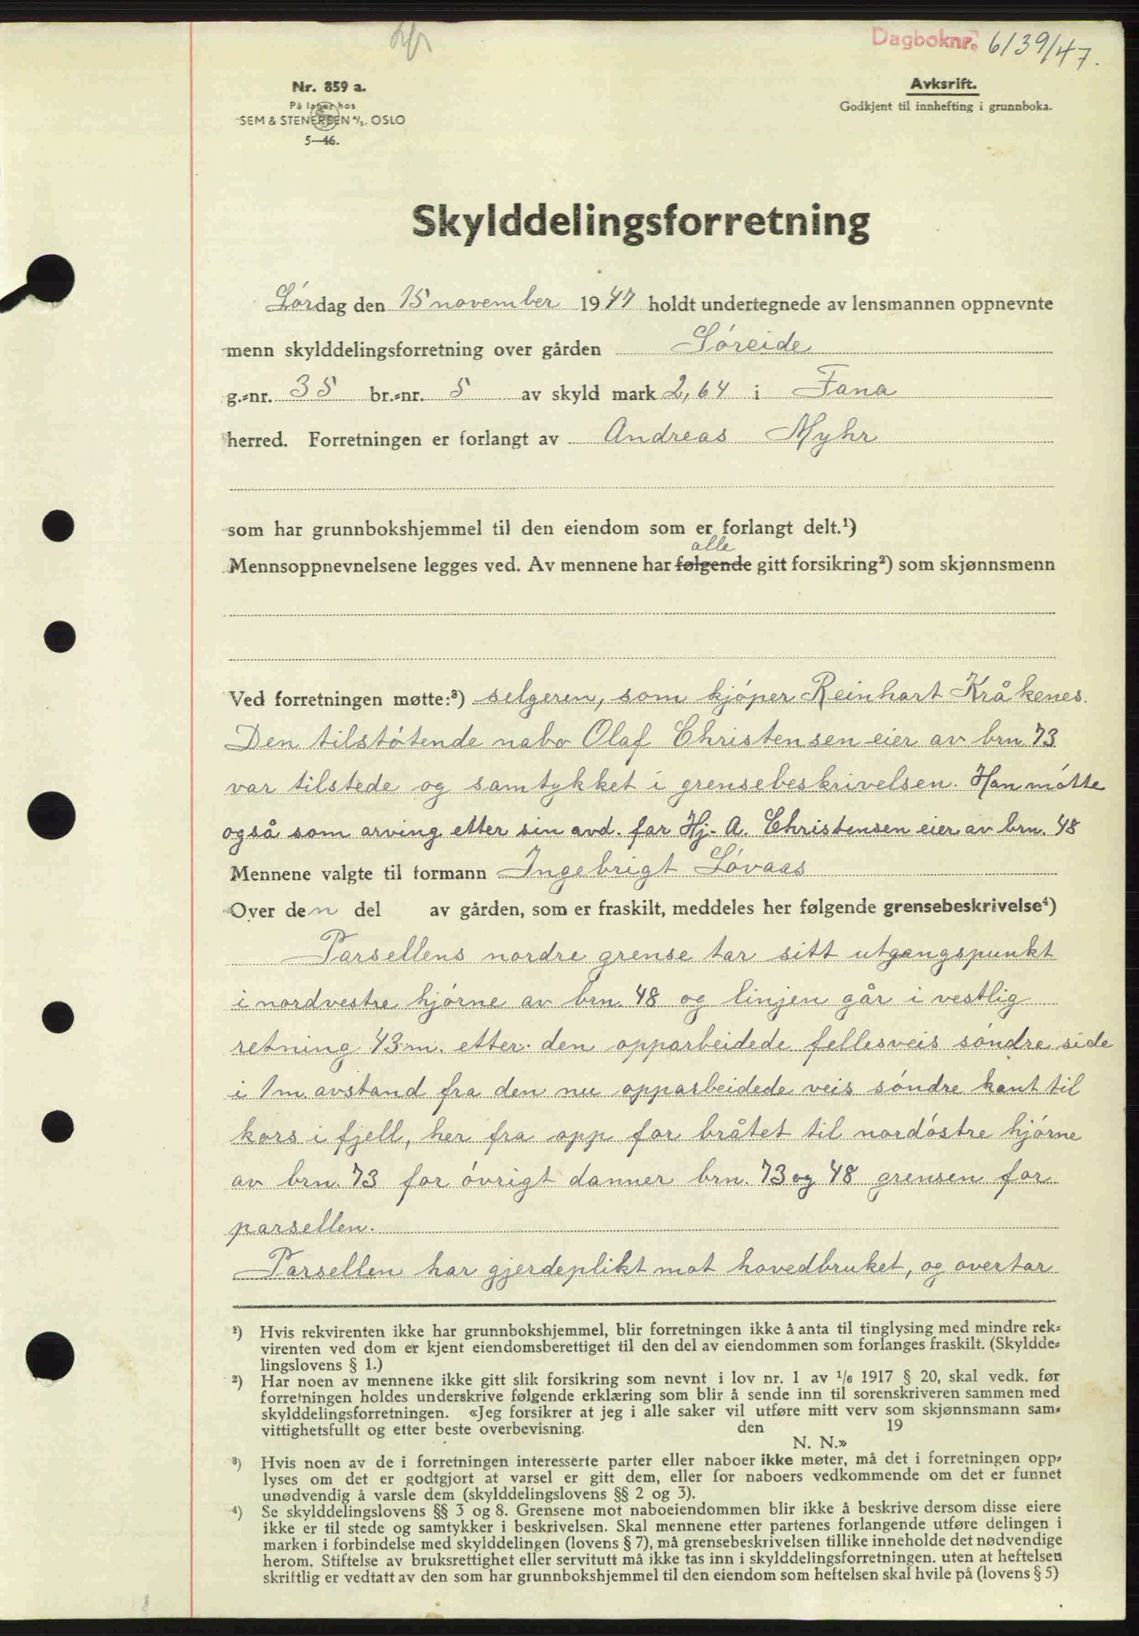 Dagboknr. 6139/47.
Nr. 859 a.
På lager hos
SEM & STENERSEN A/S. OSLO
5—46.
Avksrift.
Godkjent til innhefting i grunnboka.
Skylddelingsforretning
Lørdag den 15 november 1947 holdt undertegnede av lensmannen oppnevnte
menn skylddelingsforretning over gården Søreide
g.-nr. 35 br.-nr. 5 av skyld mark 2,64 i Fana
herred. Forretningen er forlangt av Andreas Myhr
som har grunnbokshjemmel til den eiendom som er forlangt delt.¹)
alle
Mennsoppnevnelsene legges ved. Av mennene har følgende gitt forsikring²) som skjønnsmenn
Ved forretningen møtte:³) selgeren, som kjøper Reinhart Kråkenes.
Den tilstøtende nabo Olaf Christensen eier av brn 73
var tilstede og samtykket i grensebeskrivelsen. Han møtte
også som arving etter sin avd. far Hj. A. Christensen eier av brn. 48
Mennene valgte til formann Ingebrigt Løvaas
Over den del av gården, som er fraskilt, meddeles her følgende grensebeskrivelse⁴)
Parsellens nordre grense tar sitt utgangspunkt
i nordvestre hjørne av brn. 48 og linjen går i vestlig
retning 43 m. etter den opparbeidede fellesveis søndre side
i 1m avstand fra den nu opparbeidede veis søndre kant til
kors i fjell, her fra opp for bråtet til nordøstre hjørne
av brn. 73 for øvrigt danner brn. 73 og 48 grensen for
parsellen.
Parsellen har gjerdeplikt mot hovedbruket, og overtar
¹) Hvis rekvirenten ikke har grunnbokshjemmel, blir forretningen ikke å anta til tinglysing med mindre rek-
virenten ved dom er kjent eiendomsberettiget til den del av eiendommen som forlanges fraskilt. (Skyldde-
lingslovens § 1.)
²) Har noen av mennene ikke gitt slik forsikring som nevnt i lov nr. 1 av ¹/₆ 1917 § 20, skal vedk. før
forretningen holdes underskrive følgende erklæring som blir å sende inn til sorenskriveren sammen med
skylddelingsforretningen. «Jeg forsikrer at jeg i alle saker vil utføre mitt verv som skjønnsmann sam-
vittighetsfullt og etter beste overbevisning. den 19
N. N.»
³) Hvis noen av de i forretningen interesserte parter eller naboer ikke møter, må det i forretningen opp-
lyses om det er godtgjort at varsel er gitt dem, eller for naboers vedkommende om det er funnet
unødvendig å varsle dem (skylddelingslovens §§ 2 og 3).
⁴) Se skylddelingslovens §§ 3 og 8. Grensene mot naboeiendommen blir ikke å beskrive dersom disse eiere
ikke er til stede og samtykker i beskrivelsen. Skal mennene etter partenes forlangende utføre delingen i
marken i forbindelse med skylddelingen (lovens § 7), må grensebeskrivelsen tillike inneholde det nødvendige
herom. Stiftelse av bruksrettighet eller servitutt må ikke tas inn i skylddelingsforretningen. uten at heftelsen
skriftlig er vedtatt av den som har grunnbokshjemmel til den eiendom som heftelsen skal hvile på (lovens § 5)